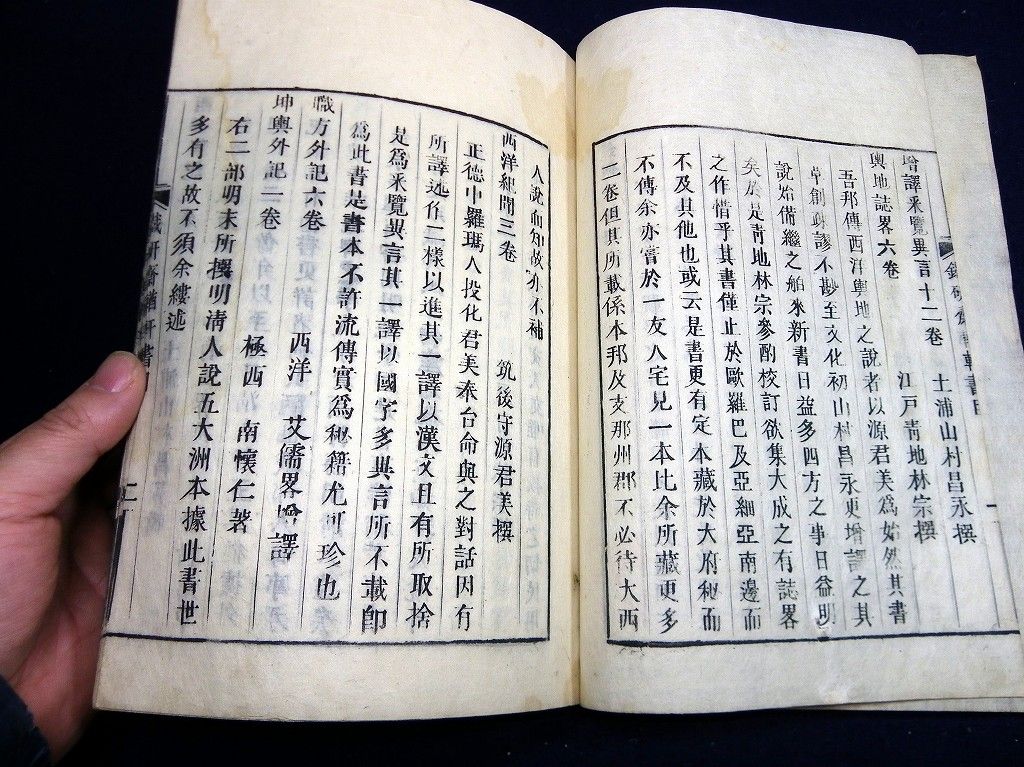 增譯采覽異言十二卷 土浦山村昌永撰
輿地誌畧六卷 江戸青地林宗撰
吾邦傳西洋輿地之說者以源君美爲始然其書
草創疎謬不尠至文化初山村昌永更增譯之其
說始備繼之舶來新書日益多四方之事日益明
矣於是靑地林宗參酌校訂欲集大成之有誌畧
之作惜乎其書僅止於歐羅巴及亞細亞南邊而
不及其他也或云是書更有定本藏於大府秘而
不傳余亦嘗於一友人宅見一本比余所藏更多
二卷但其所載係本邦及支那州郡不必待大西
人說而知故亦不補
西洋紀聞三卷 筑後守源君美撰
正德中羅瑪人投化君美奉台命與之對話因有
所譯述作二樣以進其一譯以漢文且有所取捨
是爲采覽異言其一譯以國字多異言所不載卽
爲此書是書本不許流傳實爲秘籍尤可珍也
職方外記六卷 西洋 艾儒畧增譯
坤輿外記一卷 極西 南懷仁著
右二部明末所撰明淸人說五大洲本據此書世
多有之故不須余縷述